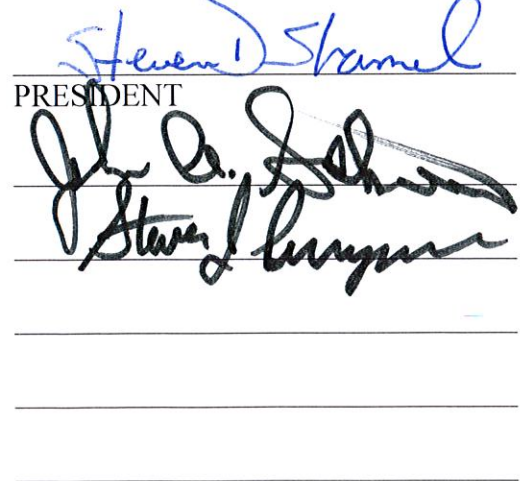 Steven D Shamel
PRESIDENT
John A.
Steven J